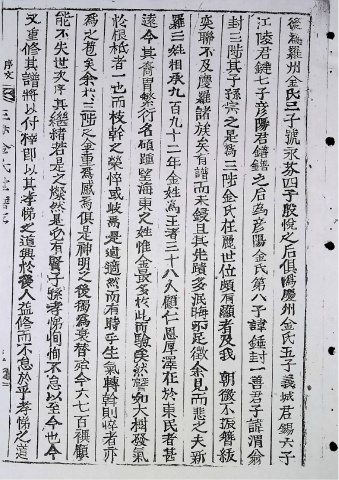 後爲羅州金氏三子號永芬四子殷悅之后俱爲慶州金氏五子義城君錫六子
江陵君鍵七子彦陽君鐥鐥之后爲彦陽金氏第八子諱錘封一善君子諱渭翁
封三陟其子孫宗之是爲三陟金氏在麗世位頗有顯者及我 朝徵不振簪紱
奕聯不及慶羅諸族矣有譜而未鋟且其先蹟多泯晦不足徵余見而悲之夫新
羅三姓相承九百九十二年金姓爲王者三十八久顯仁恩厚澤在於東民者甚
遠今其裔胄繁衍名碩踵望海東之姓惟金最多於此而驗矣然譬如大樹發氣
於根柢者一也而枝幹之榮悴或岐焉是適然而有時乎生氣轉斡則悴者亦
爲之苞矣余於三陟之金重爲感焉俱是神明之後獨爲衰替殆今六七百禩顧
能不失世次序其繼緖若是之燦然是必有賢子孫孝悌恂恂不怠以至今也今
又重修其譜將以付梓卽以其孝悌之道興於後人益修而不怠於乎孝悌之道
序文